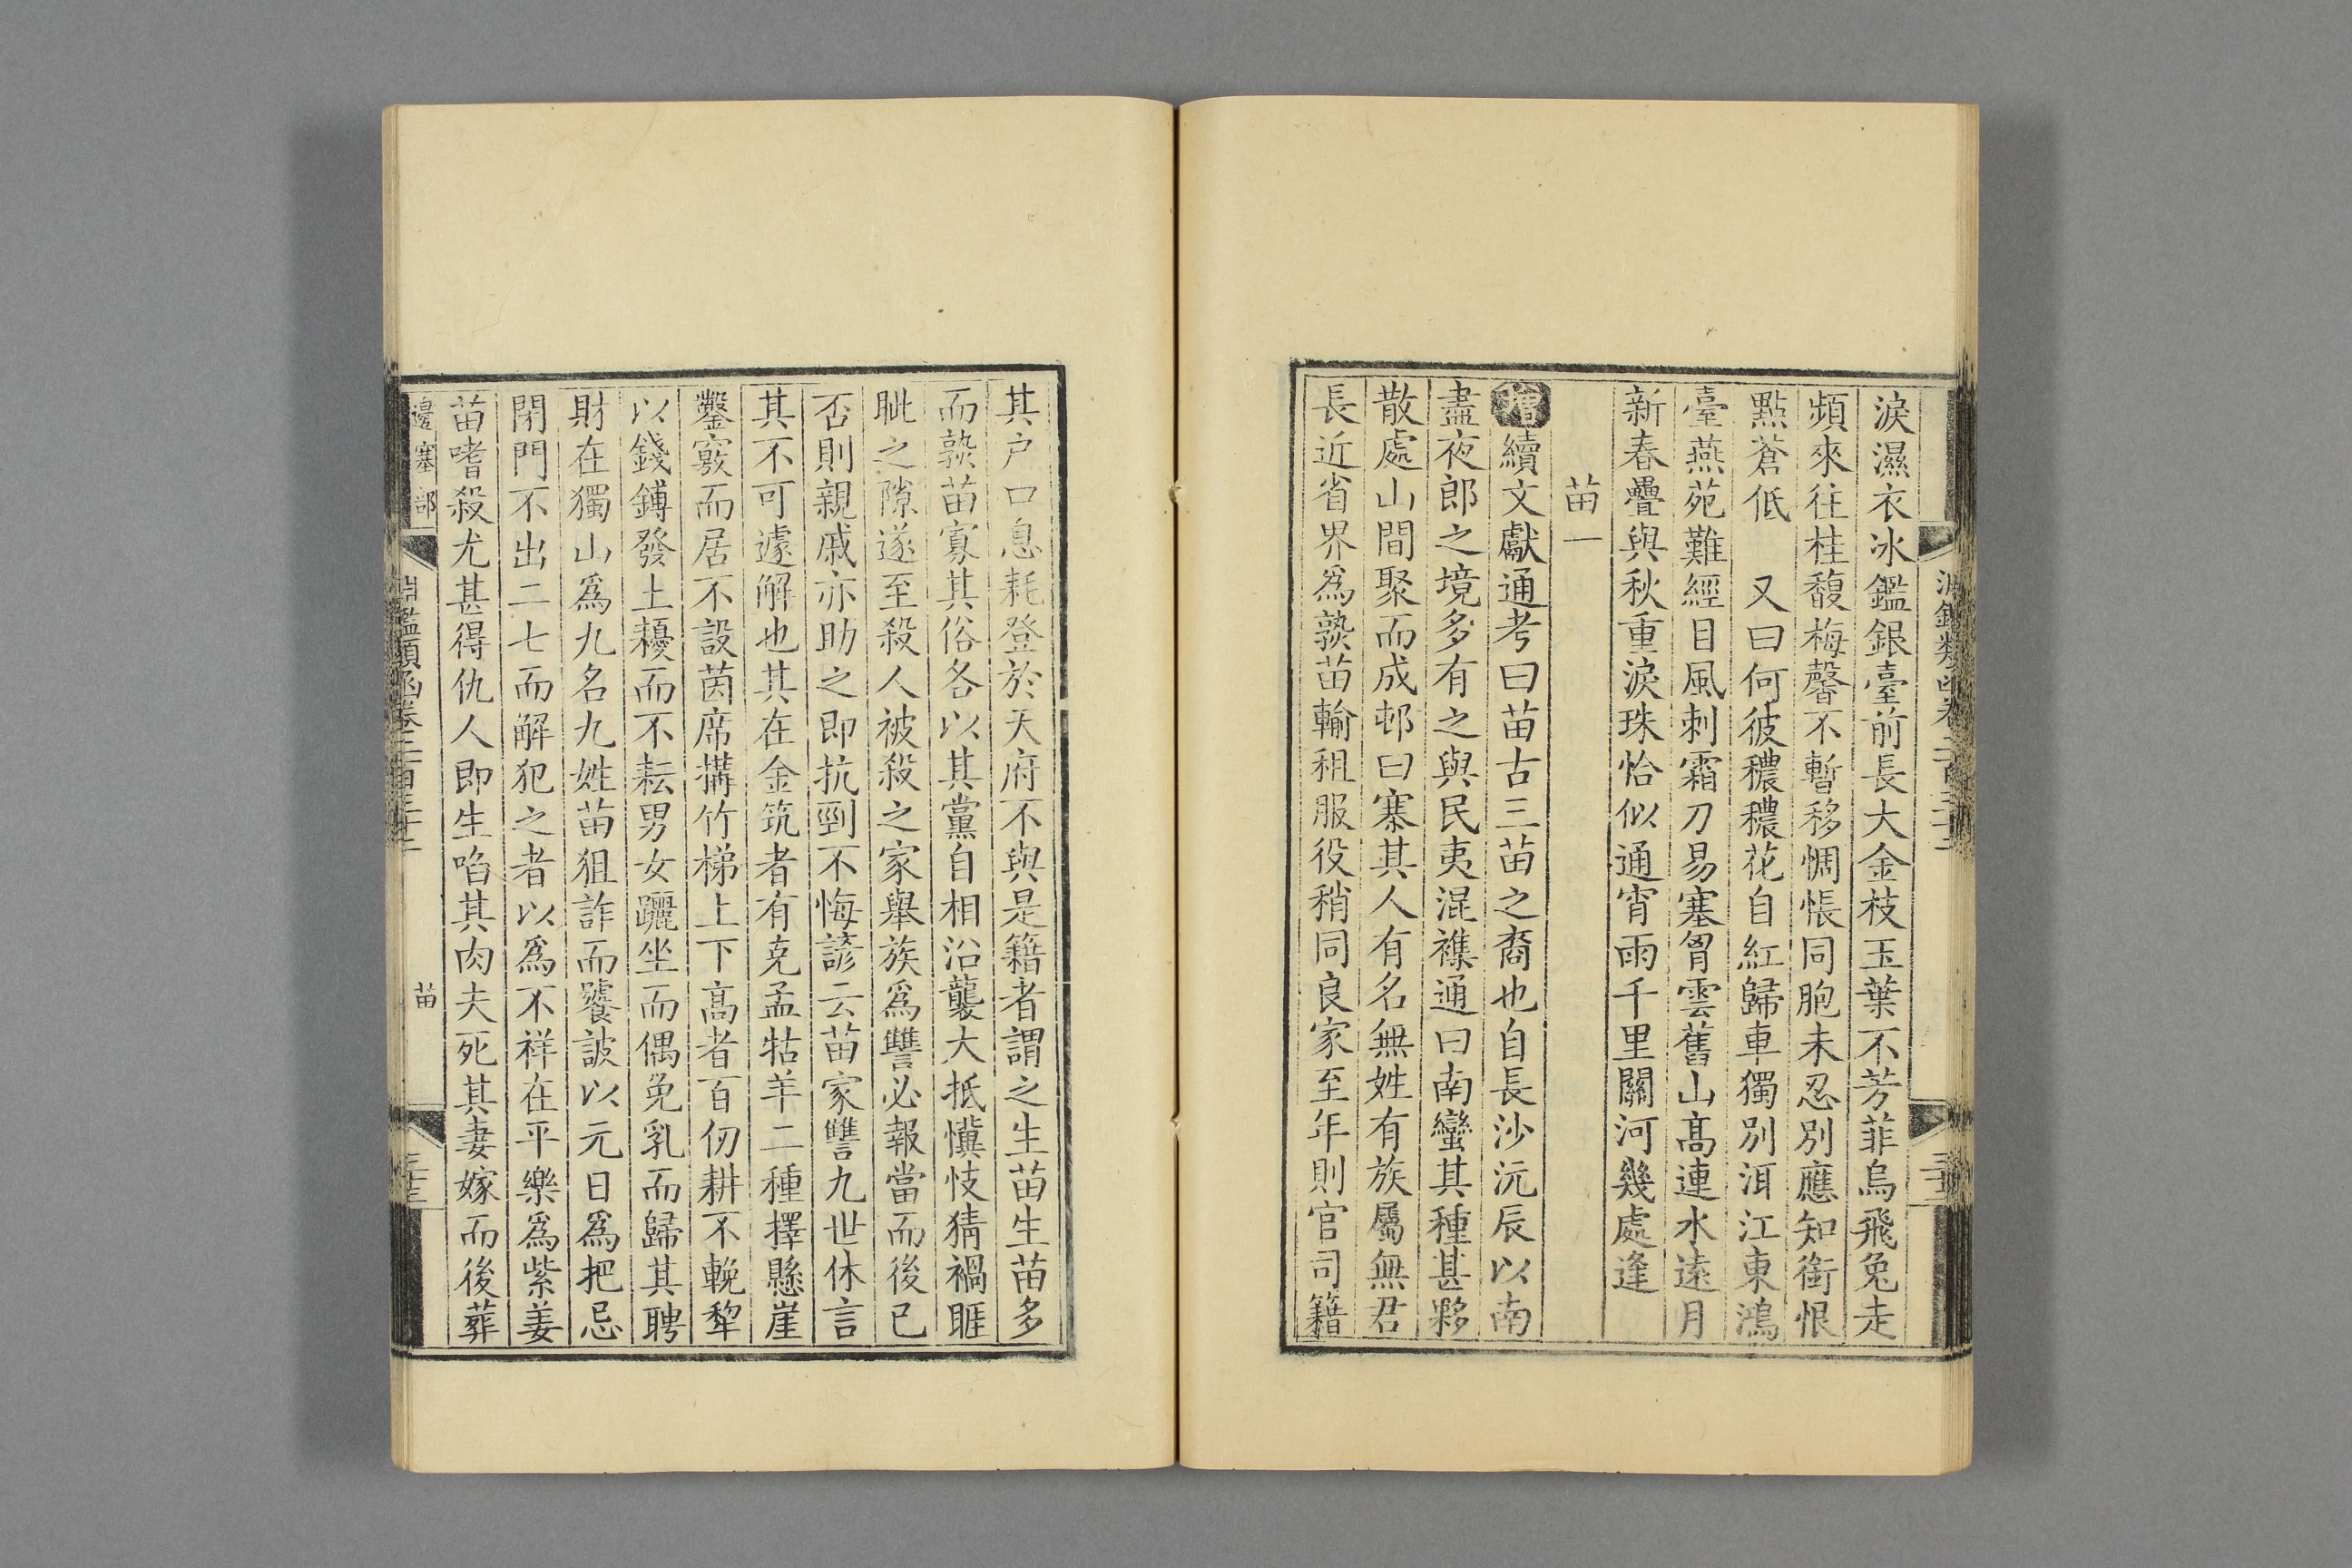 淚濕衣冰鑑銀臺前長大金枝玉葉不芳菲烏飛兔走
頻來往桂馥梅馨不暫移惆悵同胞未忍別應知銜恨
點蒼低　又曰何彼穠穠花自紅歸車獨別洱江東鴻
臺燕苑難經目風刺霜刀易塞胷雲舊山高連水遠月
新春疊與秋重淚珠恰似通宵雨千里關河幾處逢
苗一
增續文獻通考曰苗古三苗之裔也自長沙沅辰以南
盡夜郎之境多有之與民夷混襍通曰南蠻其種甚夥
散處山間聚而成邨曰寨其人有名無姓有族屬無君
長近省界爲孰苗輸租服役稍同良家至年則官司籍
其户口息耗登於天府不與是籍者謂之生苗生苗多
而孰苗寡其俗各以其黨自相沿襲大抵懻忮猜禍睚
眦之隙遂至殺人被殺之家舉族爲讐必報當而後已
否則親戚亦助之即抗剄不悔諺云苗家讐九世休言
其不可遽解也其在金筑者有克孟牯羊二種擇懸崖
鑿竅而居不設茵席構竹梯上下高者百仞耕不輓犂
以錢鎛發土耰而不耘男女躧坐而偶免乳而歸其聘
財在獨山爲九名九姓苗狙詐而饕詖以元日爲把忌
閉門不出二七而解犯之者以爲不祥在平樂爲紫姜
苗嗜殺尤甚得仇人即生啗其肉夫死其妻嫁而後葬
邊塞部
淵鑑類函卷二百三十二
苗